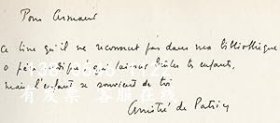 Pour Armand
Ce livre qu'il ne reconnut pas dans ma bibliothèque
O père qui laisses tes enfants,
mais l'enfant se souvient de toi
Amitié de